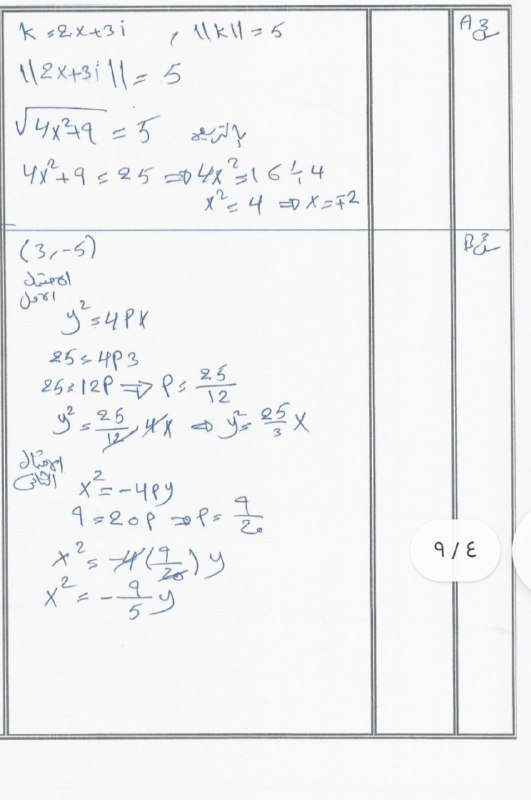 A 3س
k = 2x+3i , ||k|| = 5
||2x+3i|| = 5
√4x²+9 = 5 بالتربيع
4x²+9 = 25 ⇒ 4x² = 16 ÷ 4
x² = 4 ⇒ x = ∓2
B 3س
(3, -5)
الاحتمال
الاول
y² = 4px
25 = 4p3
25 = 12p ⇒ p = 25/12
y² = 25/12 . 4x ⇒ y² = 25/3 x
الاحتمال
الثاني
x² = -4py
9 = 20p ⇒ p = 9/20
x² = -4(9/20) y
x² = -9/5 y
٩/٤